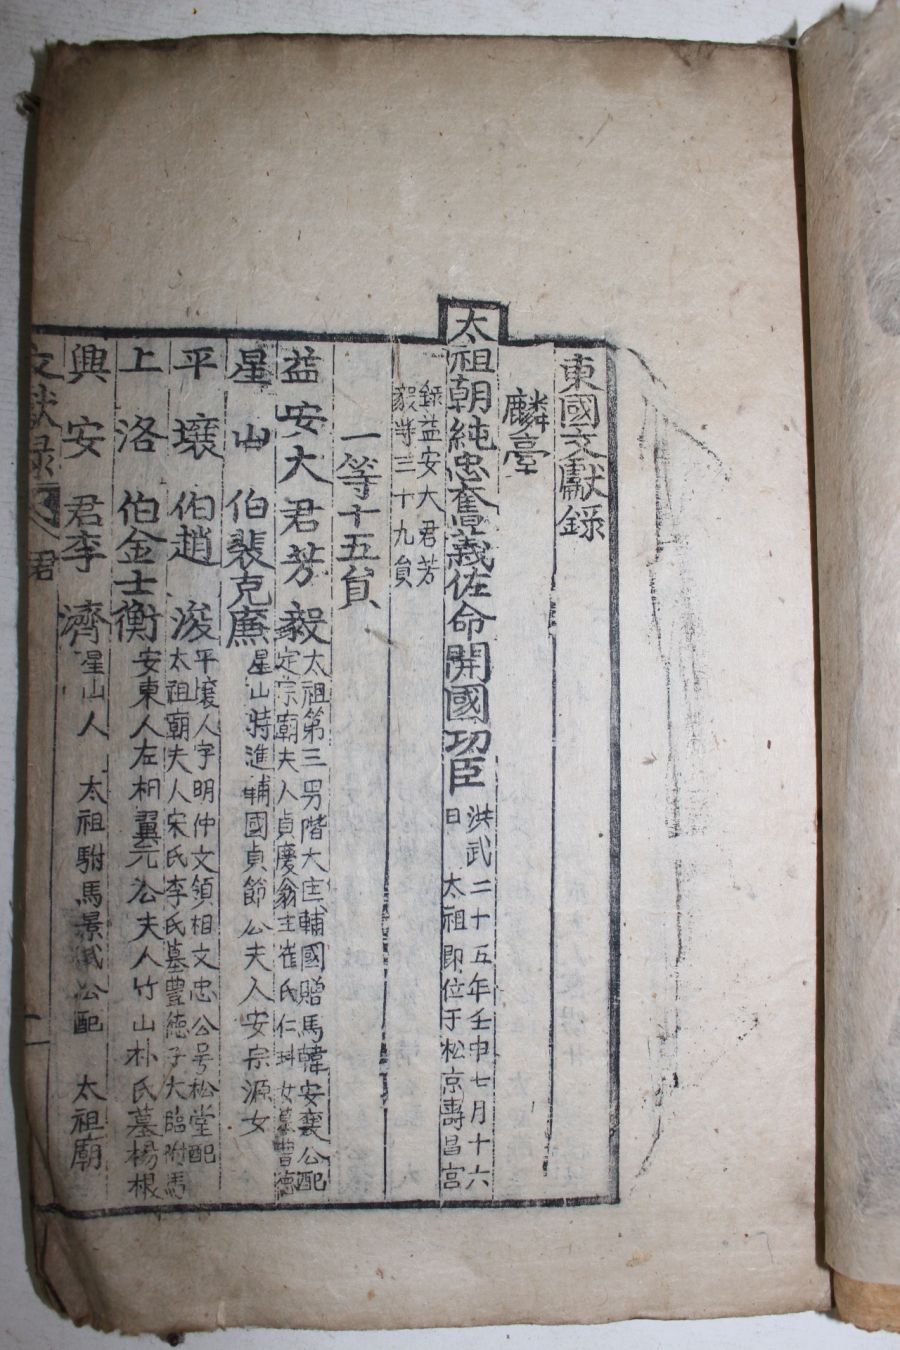 東國文獻錄
麟臺
太祖朝純忠奮義佐命開國功臣
洪武二十五年壬申七月十六
日 太祖即位于松京壽昌宮
錄益安大君芳
毅等三十九員
一等十五員
益安大君芳毅
太祖第三男階大匡輔國贈馬韓安襄公配
定宗廟夫人貞慶翁主崔氏仁 女墓豊德
星山伯裴克廉
星山特進輔國貞節公夫人安宗源女
平壤伯趙浚
平壤人字明仲文領相文忠公号松堂配
太祖廟夫人宋氏李氏墓豊德子大臨駙馬
上洛伯金士衡
安東人左相翼元公夫人竹山朴氏墓楊根
興安君李濟
星山人 太祖駙馬景武公配 太祖廟
文獻錄
君
一